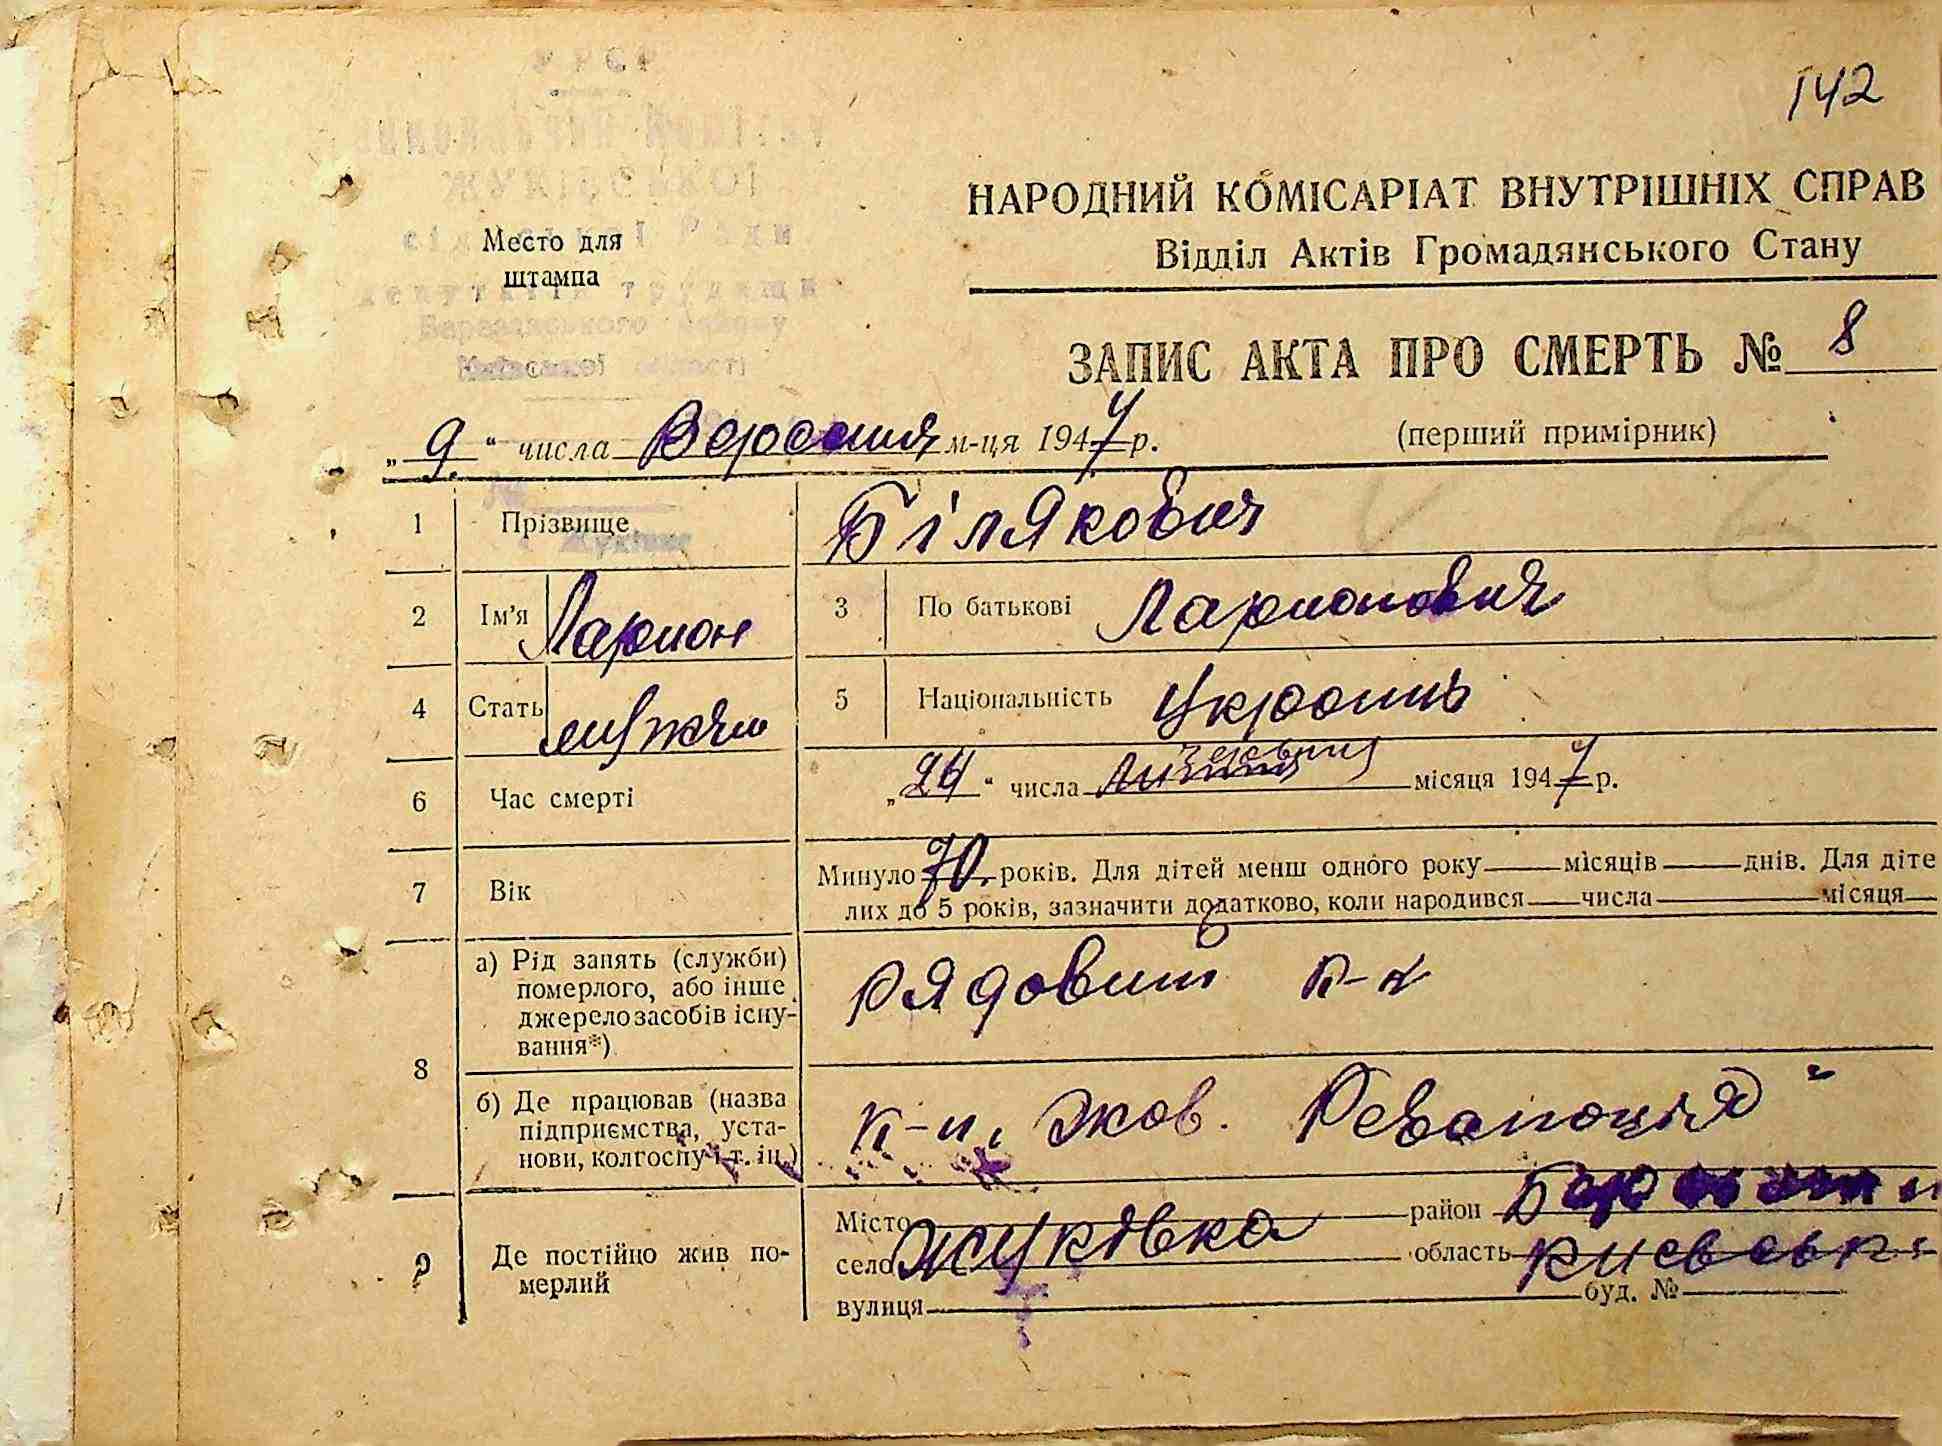 142
УРСР
ЖУКІВСЬКОЇ
сільської Ради
депутатів трудящи
Березанського району
Київської області
Место для
штампа
НАРОДНИЙ КОМІСАРІАТ ВНУТРІШНІХ СПРАВ
Відділ Актів Громадянського Стану
ЗАПИС АКТА ПРО СМЕРТЬ № 8
„9" числа Вересня м-ця 1947 р.
(перший примірник)
1 Прізвище Білякович
2 Ім'я Ларион 3 По батькові Ларионович
4 Стать мужчи 5 Національність Українць
6 Час смерті „24" числа місяця 1947 р.
7 Вік Минуло 70 років. Для дітей менш одного року місяців днів. Для діте
лих до 5 років, зазначити додатково, коли народився числа місяця
8 а) Рід занять (служби)
померлого, або інше
джерело засобів існу-
вання*)
рядовий к-к
б) Де працював (назва
підприємства, уста-
нови, колгоспу і т. ін.)
к-п. Жов. Революція"
9 Де постійно жив по-
мерлий
Місто район
село Жуківка область Київськ
вулиця буд. №